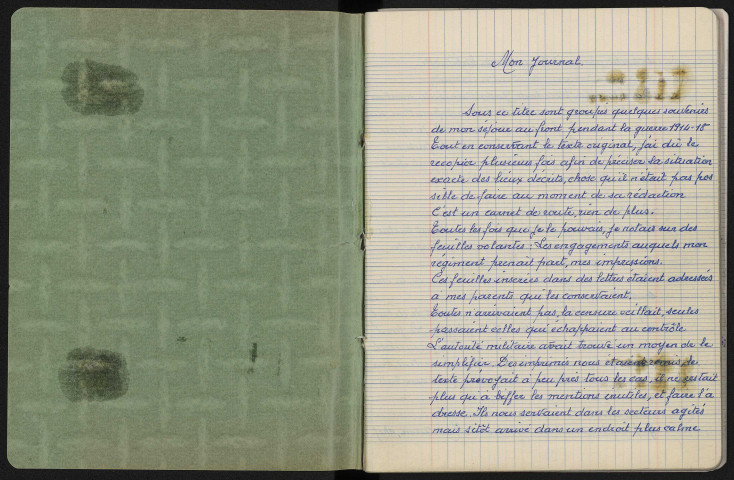 Mon Journal.
Sous ce titre sont groupés quelques souvenirs
de mon séjour au front pendant la guerre 1914-18
Tout en conservant le texte original, j'ai dû le
recopier plusieurs fois afin de préciser la situation
exacte des lieux décrits, chose qu'il n'était pas pos
sible de faire au moment de sa rédaction
C'est un carnet de route, rien de plus.
Toutes les fois que je le pouvais, je notais sur des
feuilles volantes : Les engagements auxquels mon
régiment prenait part, mes impressions.
Ces feuilles inserées dans des lettres étaient adressées
à mes parents qui les conservaient.
Toutes n'arrivaient pas, la censure veillait, seules
passaient celles qui échappaient au contrôle
L'autorité militaire avait trouvé un moyen de le
simplifier. Des imprimés nous étaient remis, le
texte prévoyait à peu près tous les cas, il ne restait
plus qu'à biffer les mentions inutiles, et faire l'a
dresse. Ils nous servaient dans les secteurs agités
mais sitôt arrivé dans un endroit plus calme